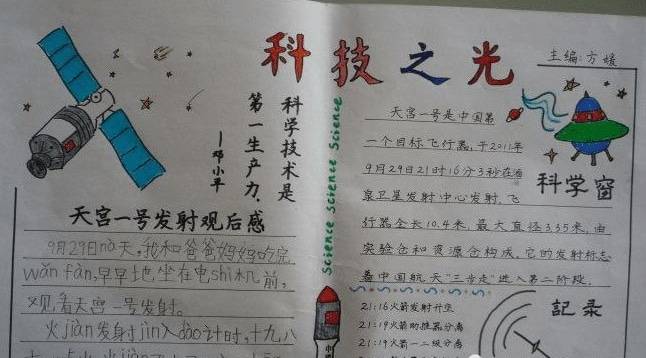 科技之光
主编:方媛
科学技术是
第一生产力.
—邓小平
天宫一号发射观后感
9月29日nà天,我和爸爸妈妈吃完
wǎn fàn,早早地坐在电shì机前,
观看天宫一号发射。
火jiàn发射jìn入dào计时,十九八
Science Science Science
天宫一号是中国第
一个目标飞行器,于2011年
9月29日21时16分3秒在酒
泉卫星发射中心发射,飞
行器全长10.4米,最大直径3.35米,由
实验仓和资源仓构成,它的发射标志
着中国航天"三步走"进入第二阶段.
科学窗
記录
21:16火箭发射升空
21:19火箭助推器分离
21:19火箭一二级分离